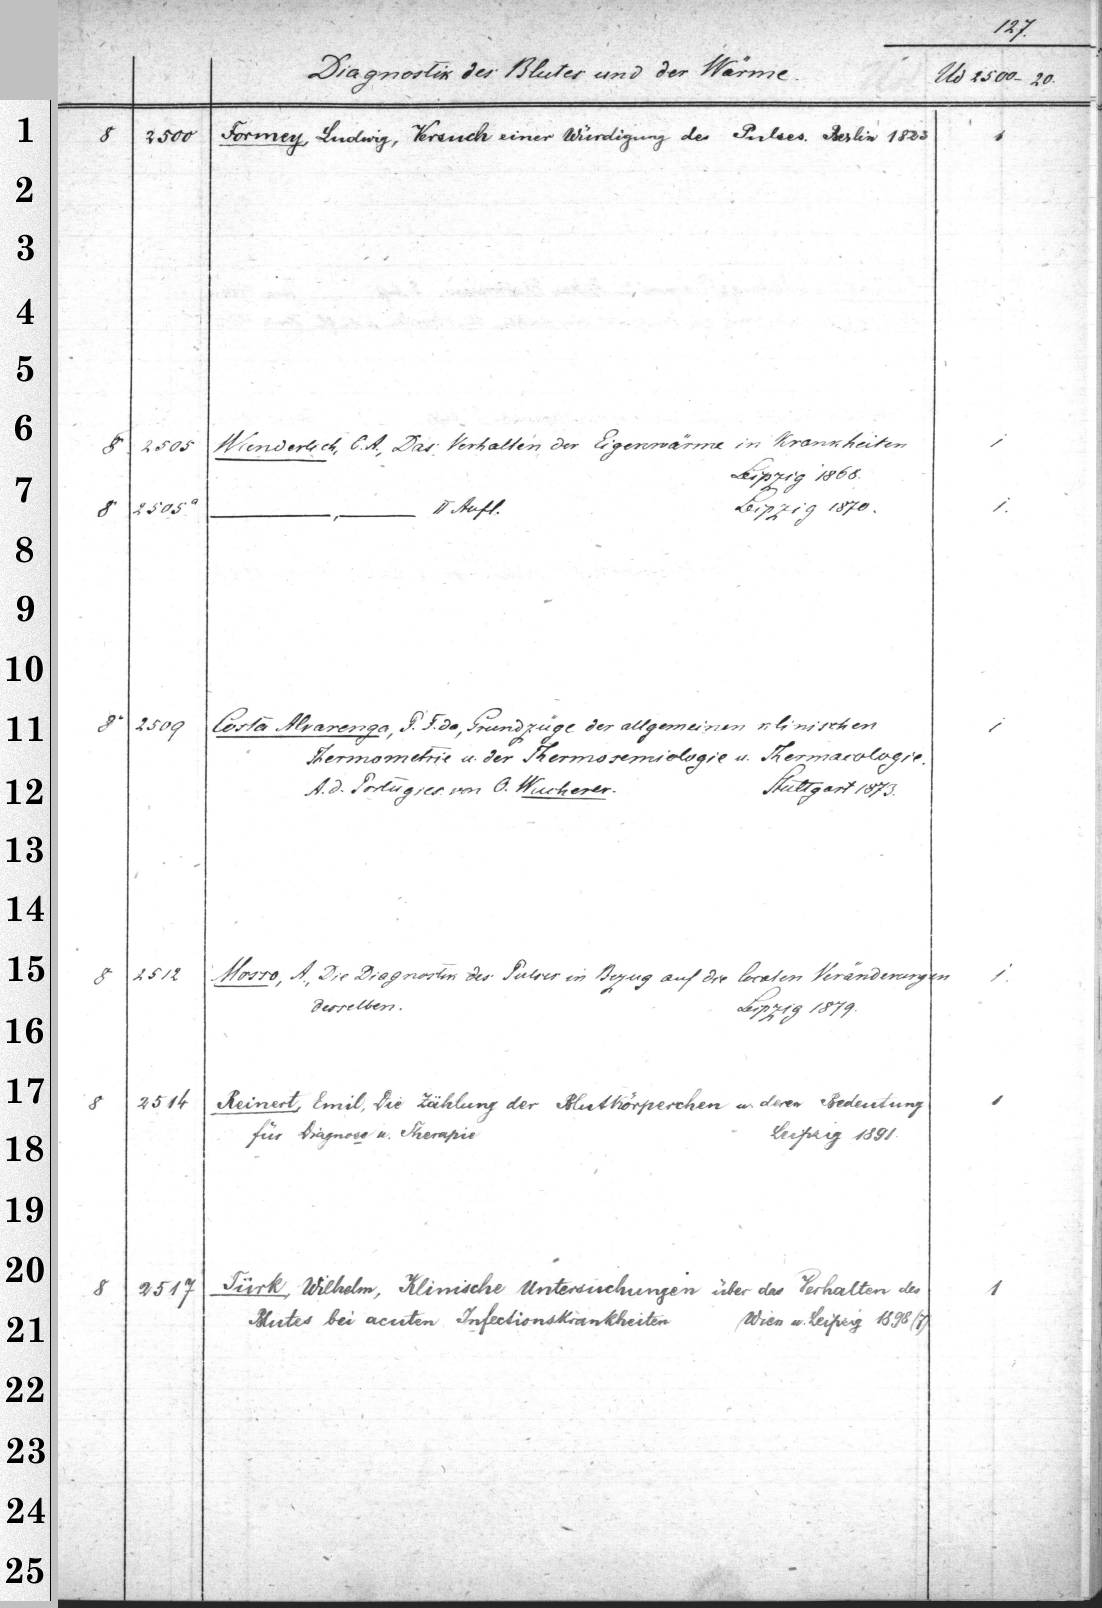 127.
Diagnostik des Blutes und der Wärme. Ud 2500-20.
1 8 2500 Formey, Ludwig, Versuch einer Würdigung des Pulses. Berlin 1823 1
2
3
4
5
6 8 2505 Wunderlich, C. A., Das Verhalten der Eigenwärme in Krankheiten 1
Leipzig 1868.
7 8 2505.a ————,——— II Aufl. Leipzig 1870. 1.
8
9
10
11 8° 2509 Costa Alvarenga, P. F. da, Grundzüge der allgemeinen klinischen 1
Thermometrie u. der Thermosemiologie u. Thermacologie.
12 A. d. Portugies. von O. Wucherer. Stuttgart 1873.
13
14
15 8 2512 Mosso, A., Die Diagnostik des Pulses in Bezug auf die localen Veränderungen 1.
desselben. Leipzig 1879.
16
17 8 2514 Reinert, Emil, Die Zählung der Blutkörperchen u. deren Bedeutung 1
für Diagnose u. Therapie Leipzig 1891.
18
19
20 8 2517 Türk, Wilhelm, Klinische Untersuchungen über das Verhalten des 1
21 Blutes bei acuten Infectionskrankheiten Wien u. Leipzig 1898 (7)
22
23
24
25